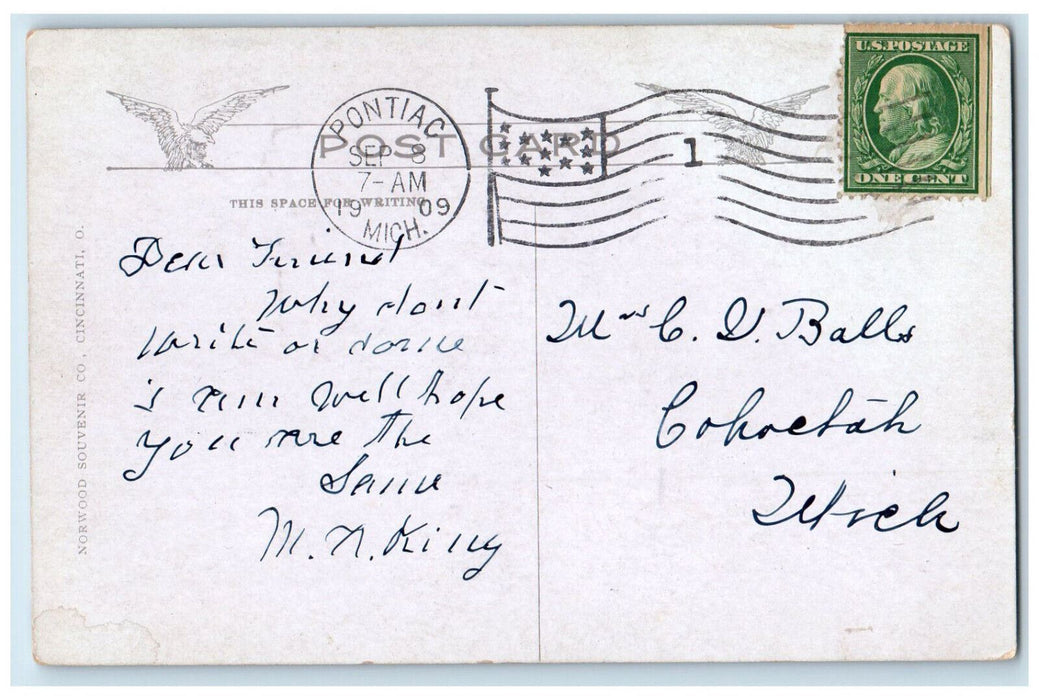 U.S.POSTAGE
ONE CENT
PONTIAC
SEP 8
7-AM
19 09
MICH.
1
POST CARD
THIS SPACE FOR WRITING
NORWOOD SOUVENIR CO., CINCINNATI, O.
Dear Friend
Why dont
write or come
i am well hope
you are the
Same
M. N. King
Mrs C. D. Balls
Cohoctah
Mich